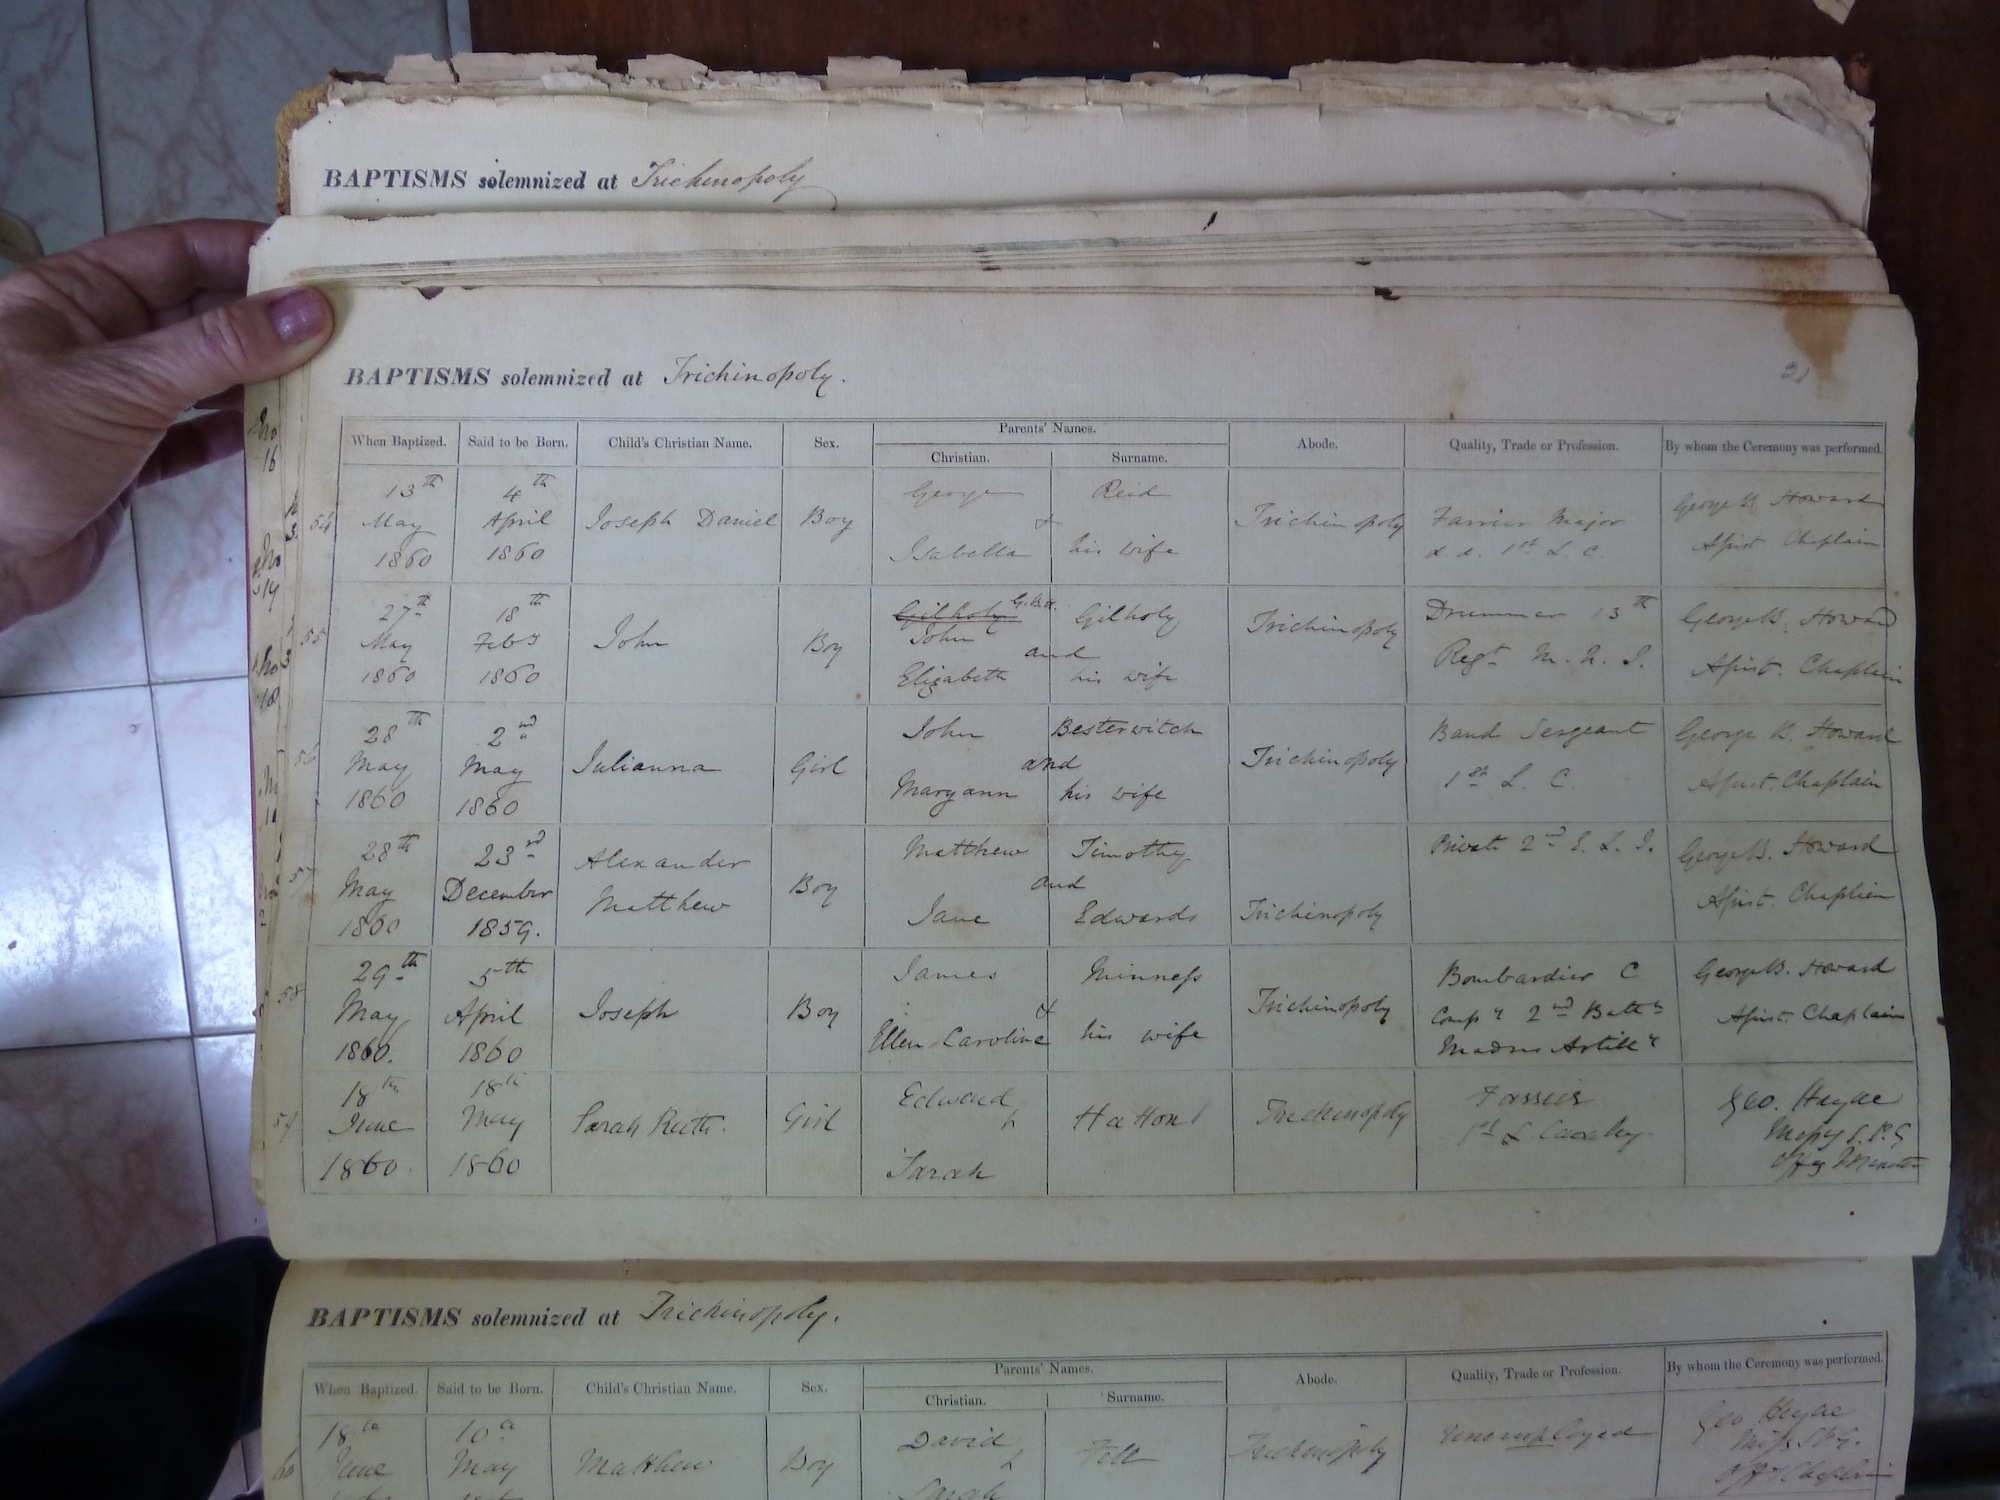 BAPTISMS solemnized at Trichinopoly
BAPTISMS solemnized at Trichinopoly.
21
Parents' Names.
When Baptized. Said to be Born. Child's Christian Name. Sex. Christian. Surname. Abode. Quality, Trade or Profession. By whom the Ceremony was performed.
13th 4th George Reid George B. Howard
54 May April Joseph Daniel Boy & Trichinopoly Farrier Major
1860 1860 Isabella his wife 1st L. C. Assist. Chaplain
27th 18th Gilholy G.B.H. Gilholy Drummer 13th George B. Howard
55 May Feby John Boy John and Trichinopoly
1860 1860 Elizabeth his wife Regt. M. N. I. Assist. Chaplain
28th 2nd John Besterwitch Band Sergeant George B. Howard
56 May May Julianna Girl and Trichinopoly
1860 1860 Maryann his wife 1st L. C. Assist. Chaplain
28th 23rd Alexander Matthew Timothy Private 2nd E. L. I. George B. Howard
57 May December Matthew Boy and
1860 1859. Jane Edwards Trichinopoly Assist. Chaplain
29th 5th James Minness Bombardier C George B. Howard
58 May April Joseph Boy & Trichinopoly Compy 2nd Battn Assist. Chaplain
1860. 1860 Ellen Caroline his wife Madras Artilly
18th 18th Edward Farrier Geo. Heyne
59 June May Sarah Ruth. Girl & Hatton Trichinopoly 1st L. Cavalry Missy S.P.G
1860. 1860 Sarah Offg Minister
BAPTISMS solemnized at Trichinopoly.
Parents' Names.
When Baptized. Said to be Born. Child's Christian Name. Sex. Christian. Surname. Abode. Quality, Trade or Profession. By whom the Ceremony was performed.
18th 10th David Unemployed Geo Heyne
60 June May Matthew Boy & Fell Trichinopoly Miss S.P.G.
Sarah Offg Chaplain